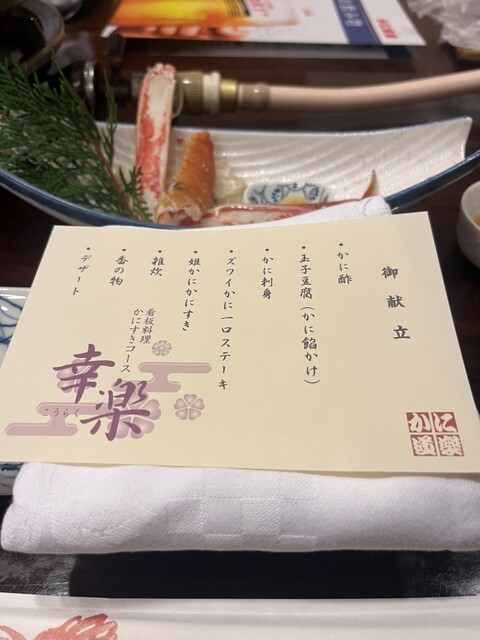 御献立
・かに酢
・玉子豆腐(かに餡かけ)
・かに刺身
・ズワイかに一口ステーキ
・姫かにかにすき
・雑炊
・香の物
・デザート
看板料理
かにすきコース
幸楽
こうらく
かに
道楽